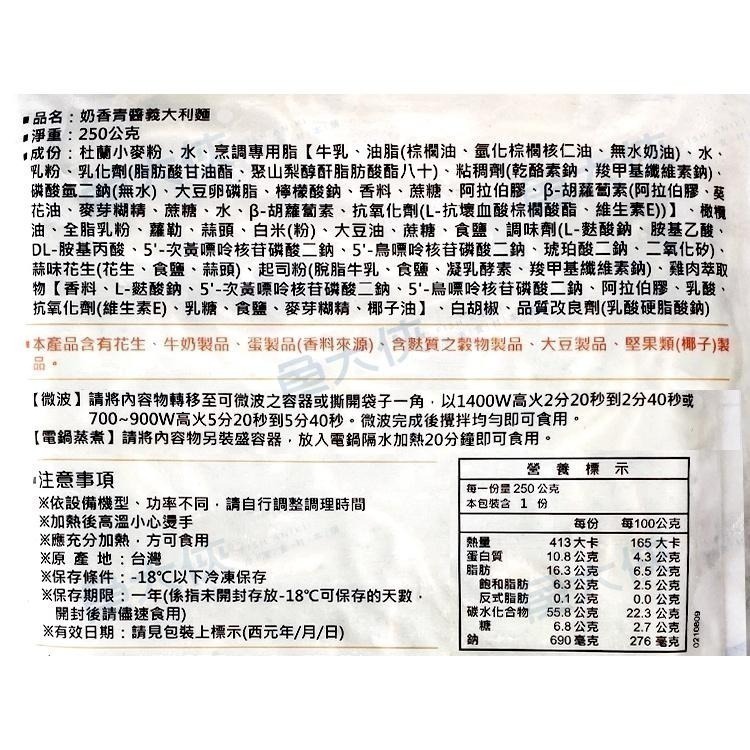 品名：奶香青醬義大利麵
淨重：250公克
成份：杜蘭小麥粉、水、烹調專用脂【牛乳、油脂(棕櫚油、氫化棕櫚核仁油、無水奶油)、水、
乳粉、乳化劑(脂肪酸甘油酯、聚山梨醇酐脂肪酸酯八十)、粘稠劑(乾酪素鈉、羧甲基纖維素鈉)、
磷酸氫二鈉(無水)、大豆卵磷脂、檸檬酸鈉、香料、蔗糖、阿拉伯膠、β-胡蘿蔔素(阿拉伯膠、葵
花油、麥芽糊精、蔗糖、水、β-胡蘿蔔素、抗氧化劑(L-抗壞血酸棕櫚酸酯、維生素E))】、橄欖
油、全脂乳粉、蘿勒、蒜頭、白米(粉)、大豆油、蔗糖、食鹽、調味劑(L-麩酸鈉、胺基乙酸、
DL-胺基丙酸、5'-次黃嘌呤核苷磷酸二鈉、5'-鳥嘌呤核苷磷酸二鈉、琥珀酸二鈉、二氧化矽)、
蒜味花生(花生、食鹽、蒜頭)、起司粉(脫脂牛乳、食鹽、凝乳酵素、羧甲基纖維素鈉)、雞肉萃取
物【香料、L-麩酸鈉、5'-次黃嘌呤核苷磷酸二鈉、5'-鳥嘌呤核苷磷酸二鈉、阿拉伯膠、乳酸、
抗氧化劑(維生素E)、乳糖、食鹽、麥芽糊精、椰子油】、白胡椒、品質改良劑(乳酸硬脂酸鈉)
本產品含有花生、牛奶製品、蛋製品(香料來源)、含麩質之穀物製品、大豆製品、堅果類(椰子)製
品。
【微波】請將內容物轉移至可微波之容器或撕開袋子一角，以1400W高火2分20秒到2分40秒或
700~900W高火5分20秒到5分40秒。微波完成後攪拌均勻即可食用。
【電鍋蒸煮】請將內容物另裝盛容器，放入電鍋隔水加熱20分鐘即可食用。
注意事項
※依設備機型、功率不同，請自行調整調理時間
※加熱後高溫小心燙手
※應充分加熱，方可食用
※原 產 地：台灣
※保存條件：-18℃以下冷凍保存
※保存期限：一年(係指未開封存放-18℃可保存的天數，
開封後請儘速食用)
※有效日期：請見包裝上標示(西元年/月/日)
營 養 標 示
每一份量 250 公克
本包裝含 1 份
每份 每100公克
熱量 413 大卡 165 大卡
蛋白質 10.8 公克 4.3 公克
脂肪 16.3 公克 6.5 公克
飽和脂肪 6.3 公克 2.5 公克
反式脂肪 0.1 公克 0.0 公克
碳水化合物 55.8 公克 22.3 公克
糖 6.8 公克 2.7 公克
鈉 690 毫克 276 毫克
0210809